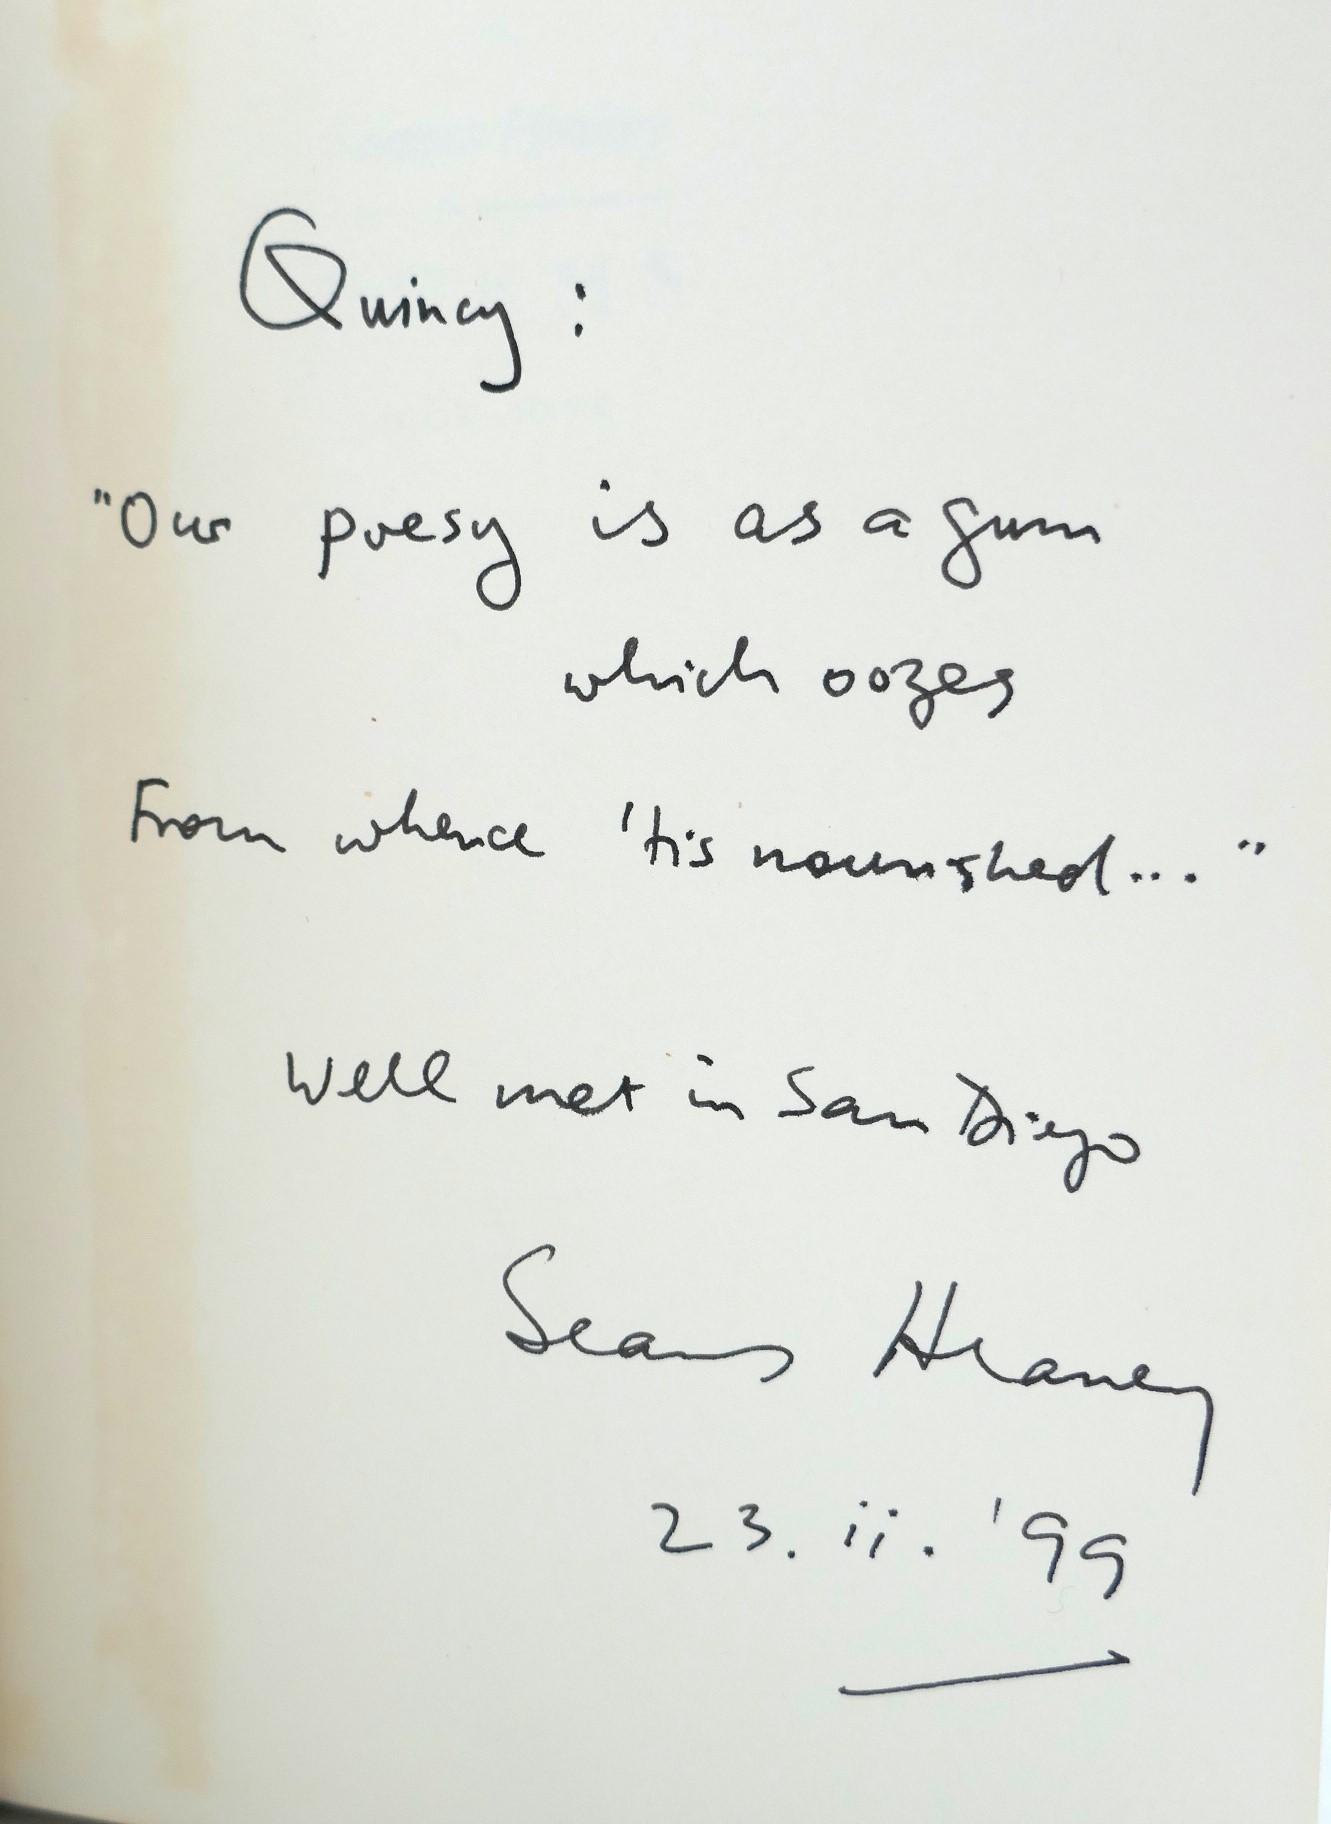 Quincy:
"Our poesy is as a gum
which oozes
From whence 'tis nourished..."
Well met in San Diego
Seamus Heaney
23. ii. '99